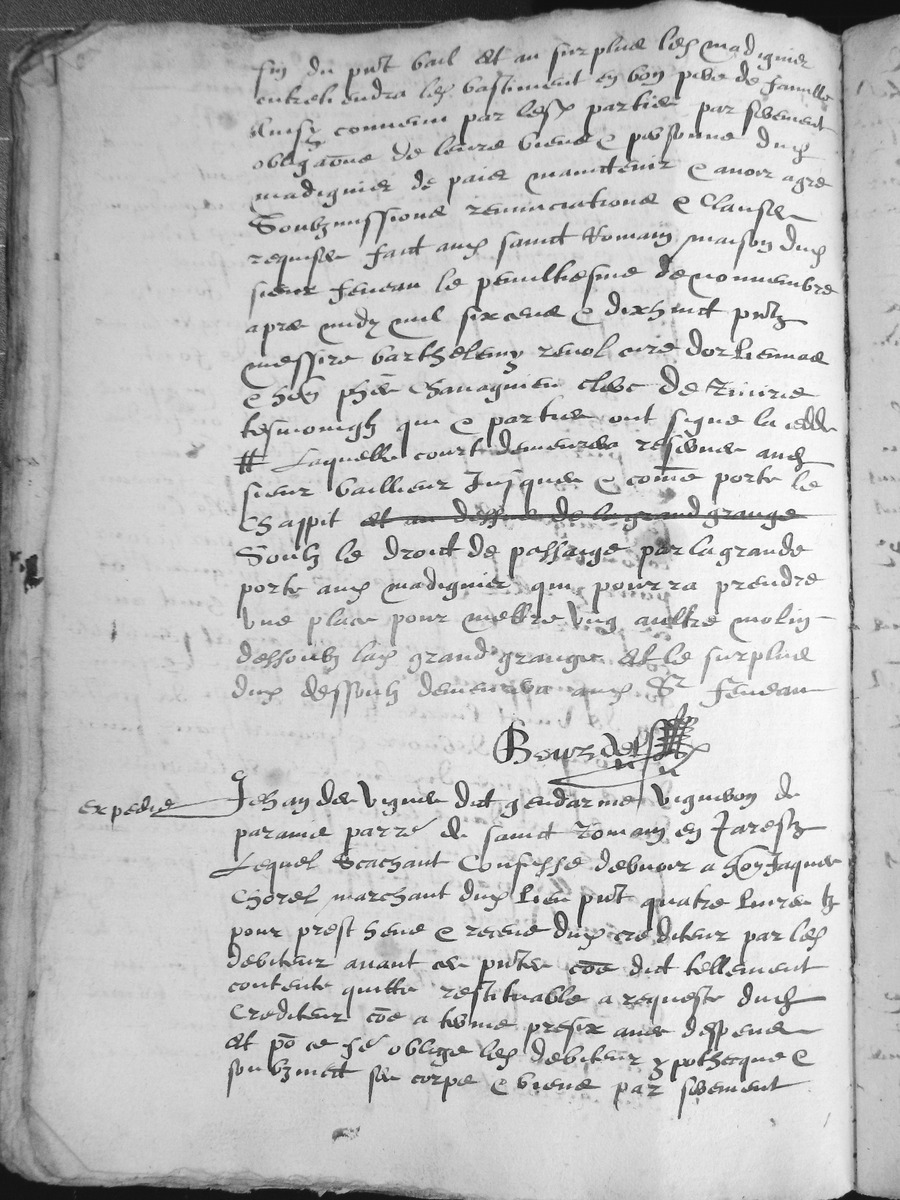 fin du pnt bail et au surplus led madignier
entretiendra les bastiment en bon pere de famille
Ainsy convenu par lesd parties par serement
obligaõns de leurs biens & personne dud
madignier de paier mainctenir & avoir agre
Soubzmissions renunciations & clauses
requises faict aud sainct Romain maison dud
sieur feneau le penultiesme de nouvembre
apres midy mil six cens & dixhuict pntz
messire barthelemy revol cure dorliennas
& hon phes Chanagnieu clerc de
tesmoingtz qui & parties ont signe la cedde
# Laquelle court demeurera reservee aud
sieur bailleur Jusques & come porte le
Chappit et au dessus de la grand grange
Soubz le droit de passaige par la grande
porte aud madignier qui pourra prendre
une place pour mettre ung aultre molin
dessoubz lad grand grange et le surplus
dud dessoubz demeurera aud Sr feneau
Bourdel
expedie
Jehan des vignes dit gendarme vigneron de
parame parre de sainct Romain en Jarestz
Lequel Scachant Confesse debvoir a hon Jaques
Chorel marchant dud lieu pnt quatre livres tz
pour prest heue & receue dud crediteur par led
debiteur avant ces pntes cõe dict tellement
contente quitte restituable a requeste dud
Crediteur cõe a terme prefix avec despens
et põ ce fe oblige led debiteur ypothecque &
soubzmect ses corps & biens par serement